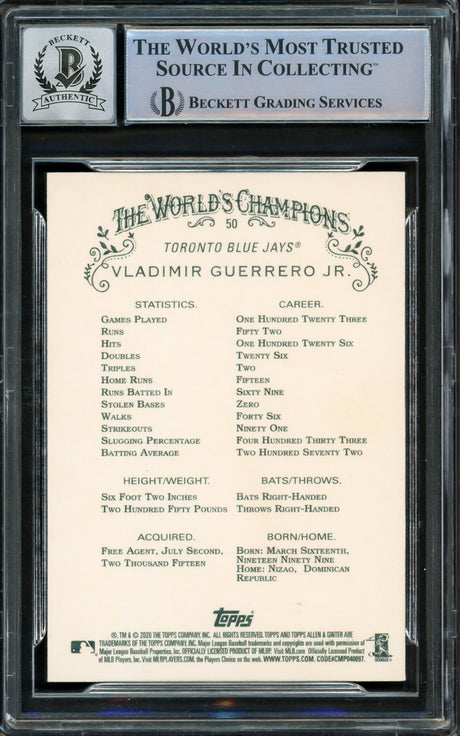 BECKETT
B
AUTHENTIC
THE WORLD'S MOST TRUSTED
SOURCE IN COLLECTING™
B BECKETT GRADING SERVICES
THE WORLD'S CHAMPIONS
50
TORONTO BLUE JAYS®
VLADIMIR GUERRERO JR.
STATISTICS. CAREER.
GAMES PLAYED ONE HUNDRED TWENTY THREE
RUNS FIFTY TWO
HITS ONE HUNDRED TWENTY SIX
DOUBLES TWENTY SIX
TRIPLES TWO
HOME RUNS FIFTEEN
RUNS BATTED IN SIXTY NINE
STOLEN BASES ZERO
WALKS FORTY SIX
STRIKEOUTS NINETY ONE
SLUGGING PERCENTAGE FOUR HUNDRED THIRTY THREE
BATTING AVERAGE TWO HUNDRED SEVENTY TWO
HEIGHT/WEIGHT. BATS/THROWS.
SIX FOOT TWO INCHES BATS RIGHT-HANDED
TWO HUNDRED FIFTY POUNDS THROWS RIGHT-HANDED
ACQUIRED. BORN/HOME.
FREE AGENT, JULY SECOND, BORN: MARCH SIXTEENTH,
TWO THOUSAND FIFTEEN NINETEEN NINETY NINE
HOME: NIZAO, DOMINICAN
REPUBLIC
Topps
®, TM & © 2020 THE TOPPS COMPANY, INC. ALL RIGHTS RESERVED. TOPPS AND TOPPS ALLEN & GINTER ARE
TRADEMARKS OF THE TOPPS COMPANY, INC. Major League Baseball trademarks and copyrights are used with permission of
Major League Baseball Properties, Inc. OFFICIALLY LICENSED PRODUCT OF MLBP. Visit MLB.com Officially Licensed Product
of MLB Players, Inc. Visit MLBPLAYERS.COM, the Players Choice on the web. WWW.TOPPS.COM. CODE#CMP040097.